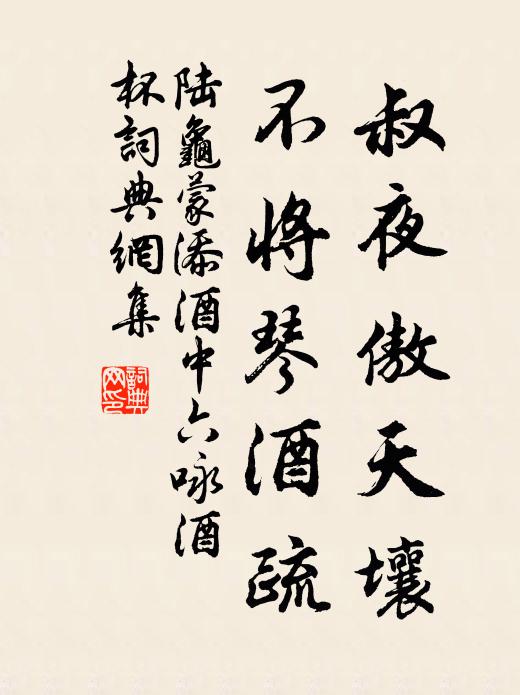 叔夜傲天壤
不將琴酒疏
陆龜蒙添酒中六咏酒
杯詞典網集
詞典
网印